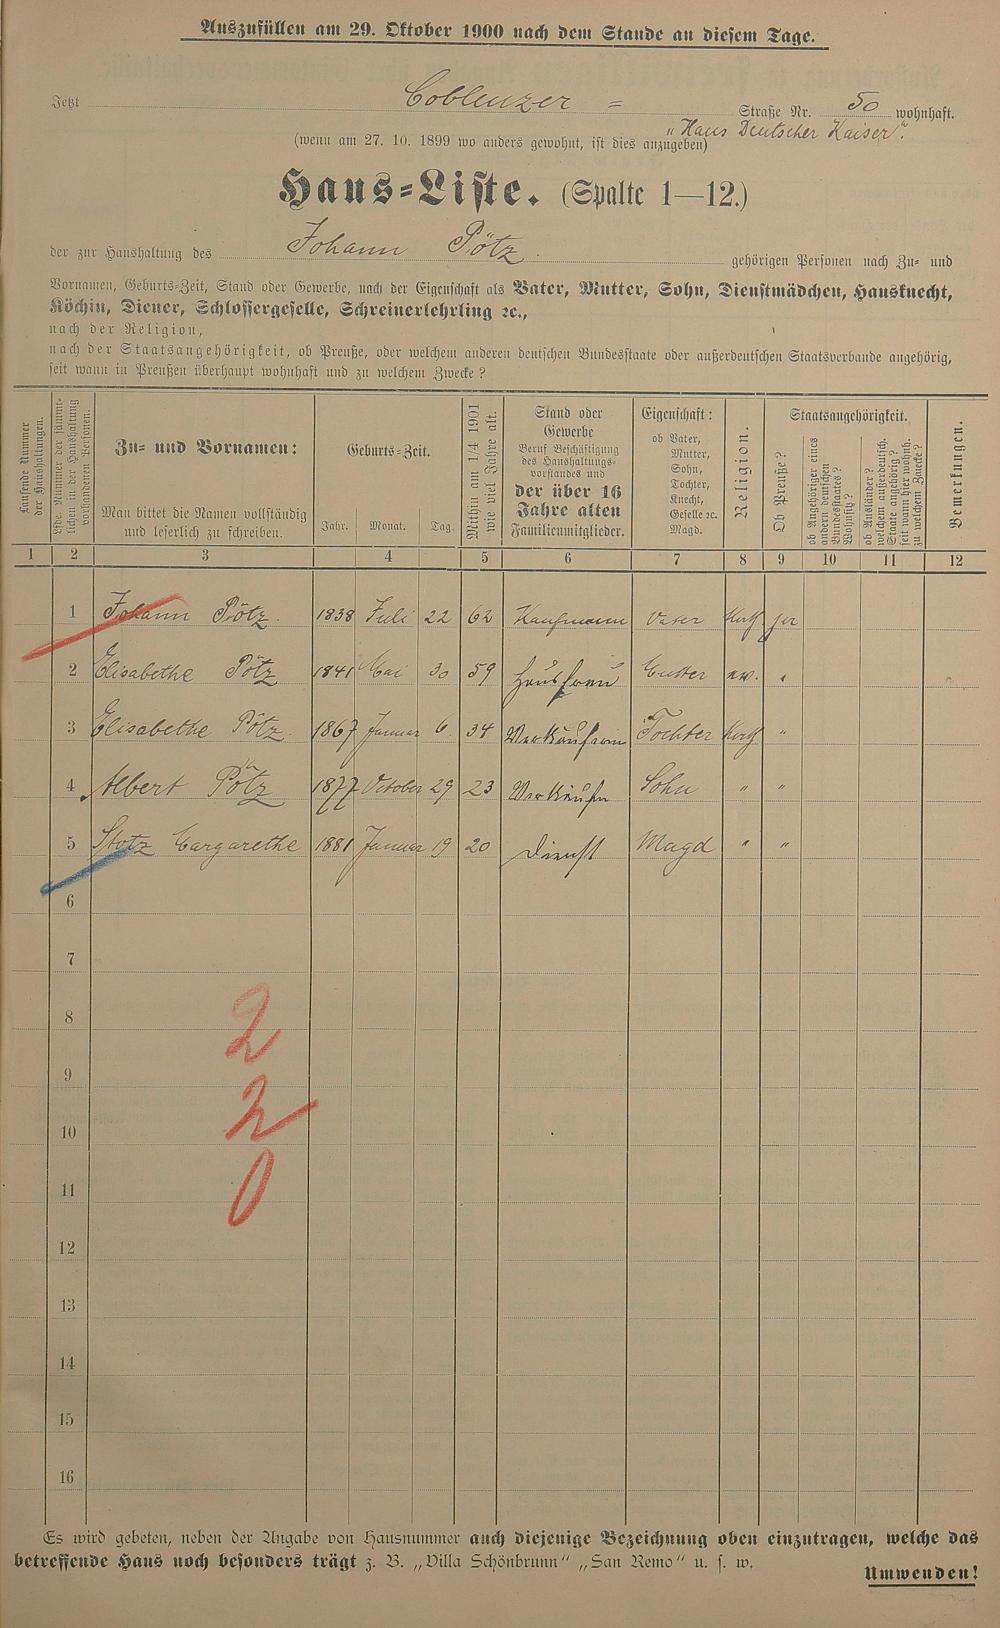 Auszufüllen am 29. Oktober 1900 nach dem Stande an diesem Tage.
Jetzt Coblenzer = Straße Nr. 50 wohnhaft.
(wenn am 27. 10. 1899 wo anders gewohnt, ist dies anzugeben) "Haus Deutscher Kaiser".
Haus=Liste. (Spalte 1—12.)
der zur Haushaltung des Johann Pötz. gehörigen Personen nach Zu= und
Vornamen, Geburts=Zeit, Stand oder Gewerbe, nach der Eigenschaft als Vater, Mutter, Sohn, Dienstmädchen, Hausknecht,
Köchin, Diener, Schlossergeselle, Schreinerlehrling ꝛc.,
nach der Religion,
nach der Staatsangehörigkeit, ob Preuße, oder welchem anderen deutschen Bundesstaate oder außerdeutschen Staatsverbande angehörig,
seit wann in Preußen überhaupt wohnhaft und zu welchem Zwecke?
Laufende Nummer
der Haushaltungen.
Lfde. Nummer der sämmt-
lichen in der Haushaltung
vorhandenen Personen.
Zu= und Vornamen:
Man bittet die Namen vollständig
und leserlich zu schreiben.
Geburts=Zeit.
Jahr. Monat. Tag.
Mithin am 1/4 1901
wie viel Jahre alt.
Stand oder
Gewerbe
Beruf Beschäftigung
des Haushaltungs-
vorstandes und
der über 16
Jahre alten
Familienmitglieder.
Eigenschaft:
ob Vater,
Mutter,
Sohn,
Tochter,
Knecht,
Geselle ꝛc.
Magd.
Religion.
Staatsangehörigkeit.
Ob Preuße?
ob Angehöriger eines
andern deutschen
Bundesstaates?
Wohnsitz?
ob Ausländer?
welchem außerdeutsch.
Staate angehörig?
seit wann hier wohnh.
zu welchem Zwecke?
Bemerkungen.
1 2 3 4 5 6 7 8 9 10 11 12
1 Johann Pötz. 1838 Juli 22 62 Kaufmann Vater Kath ja
2 Elisabethe Pötz 1841 Mai 30 59 Hausfrau Mutter ev. "
3 Elisabethe Pötz. 1867 Januar 6. 34 Verkäuferin Tochter Kath "
4 Albert Pötz 1877 October 29 23 Verkäufer Sohn " "
5 Stotz Margarethe 1881 Januar 19 20 Dienst Magd " "
6
7
8
9
10
11
12
13
14
15
16
2
2
0
Es wird gebeten, neben der Angabe von Hausnummer auch diejenige Bezeichnung oben einzutragen, welche das
betreffende Haus noch besonders trägt z. B. „Villa Schönbrunn" „San Remo" u. s. w.
Umwenden!